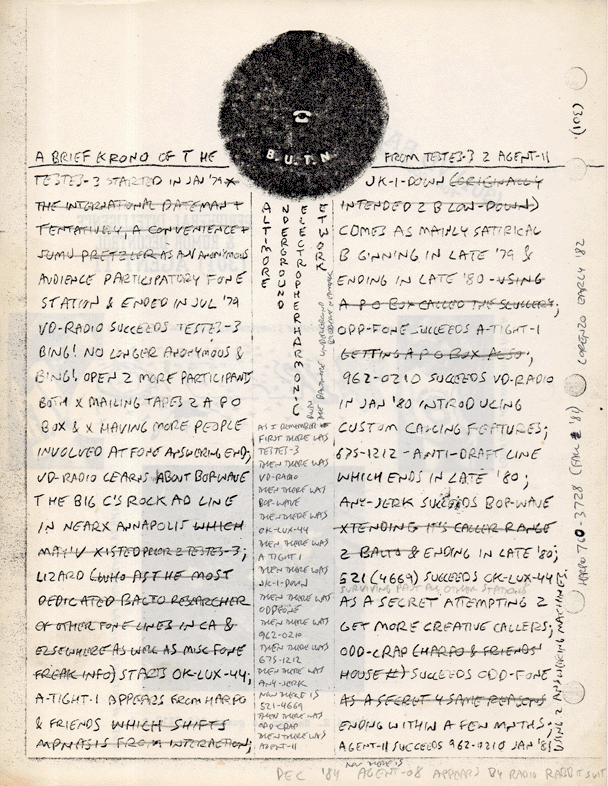 B. U. T. N.
A BRIEF KRONO OF THE
FROM TESTES-3 2 AGENT-11
TESTES-3 STARTED IN JAN '79 X
THE INTERNATIONAL DATEMAN +
TENTATIVELY, A CONVENIENCE +
AS AN ANONYMOUS
AUDIENCE PARTICIPATORY FONE
STATION & ENDED IN JUL '79
VD-RADIO SUCCEEDS TESTES-3
BING! NO LONGER ANONYMOUS &
BING! OPEN 2 MORE PARTICIPANTS
BOTH X MAILING TAPES 2 A P O
BOX & X HAVING MORE PEOPLE
INVOLVED AT FONE ANSWERING END;
VD-RADIO LEARNS ABOUT BOP-WAVE
THE BIG C'S ROCK AD LINE
IN NEARX ANNAPOLIS WHICH
MAY'V XISTED PRIOR 2 TESTES-3;
LIZARD (WHO AS THE MOST
DEDICATED BALTO RESEARCHER
OF OTHER FONE LINES IN CA &
ELSEWHERE AS WELL AS MISC FONE
FREAK INFO) STARTS OK-LUX-44;
A-TIGHT-1 APPEARS FROM HARPO
& FRIENDS WHICH SHIFTS
MPHASIS FROM INTERACTION;
BALTIMORE
UNDERGROUND
ELECTROPHERHARMONIC
NETWORK
AS I REMEMBER
FIRST THERE WAS
TESTES-3
THEN THERE WAS
VD-RADIO
THEN THERE WAS
BOP-WAVE
THEN THERE WAS
OK-LUX-44
THEN THERE WAS
A TIGHT 1
THEN THERE WAS
JK-1-DOWN
THEN THERE WAS
ODDFONE
THEN THERE WAS
962-0210
THEN THERE WAS
675-1212
THEN THERE WAS
ANY-JERK
NOW THERE IS
521-4669
THEN THERE WAS
ODD CRAP
THEN THERE WAS
AGENT-11
NOW THERE IS
JK-1-DOWN (ORIGINALLY
INTENDED 2 B LOW-DOWN)
COMES AS MAINLY SATIRICAL
B GINNING IN LATE '79 &
ENDING IN LATE '80 - USING
A P O BOX CALLED THE SLUGGERY;
ODD-FONE SUCCEEDS A-TIGHT-1
GETTING A P O BOX ALSO;
962-0210 SUCCEEDS VD-RADIO
IN JAN '80 INTRODUCING
CUSTOM CALLING FEATURES;
675-1212 - ANTI-DRAFT LINE
WHICH ENDS IN LATE '80;
ANY-JERK SUCCEEDS BOP-WAVE
XTENDING IT'S CALLER RANGE
2 BALTO & ENDING IN LATE '80;
521 (4669) SUCCEEDS OK-LUX-44
SURVIVING PAST ALL OTHER STATIONS
AS A SECRET ATTEMPTING 2
GET MORE CREATIVE CALLERS;
ODD-CRAP (HARPO & FRIENDS
HOUSE #) SUCCEEDS ODD-FONE
AS A SECRET 4 SAME REASONS
ENDING WITHIN A FEW MNTHS;
AGENT-11 SUCCEEDS 962-0210 JAN '81
USING 2 ANSWERING MACHINES.
(301).
LORENZO EARLY '82
HARPO 760-3728 (FALL '81)
DEC '84 AGENT-08 APPEARS BY RADIO RABBIT SUIT